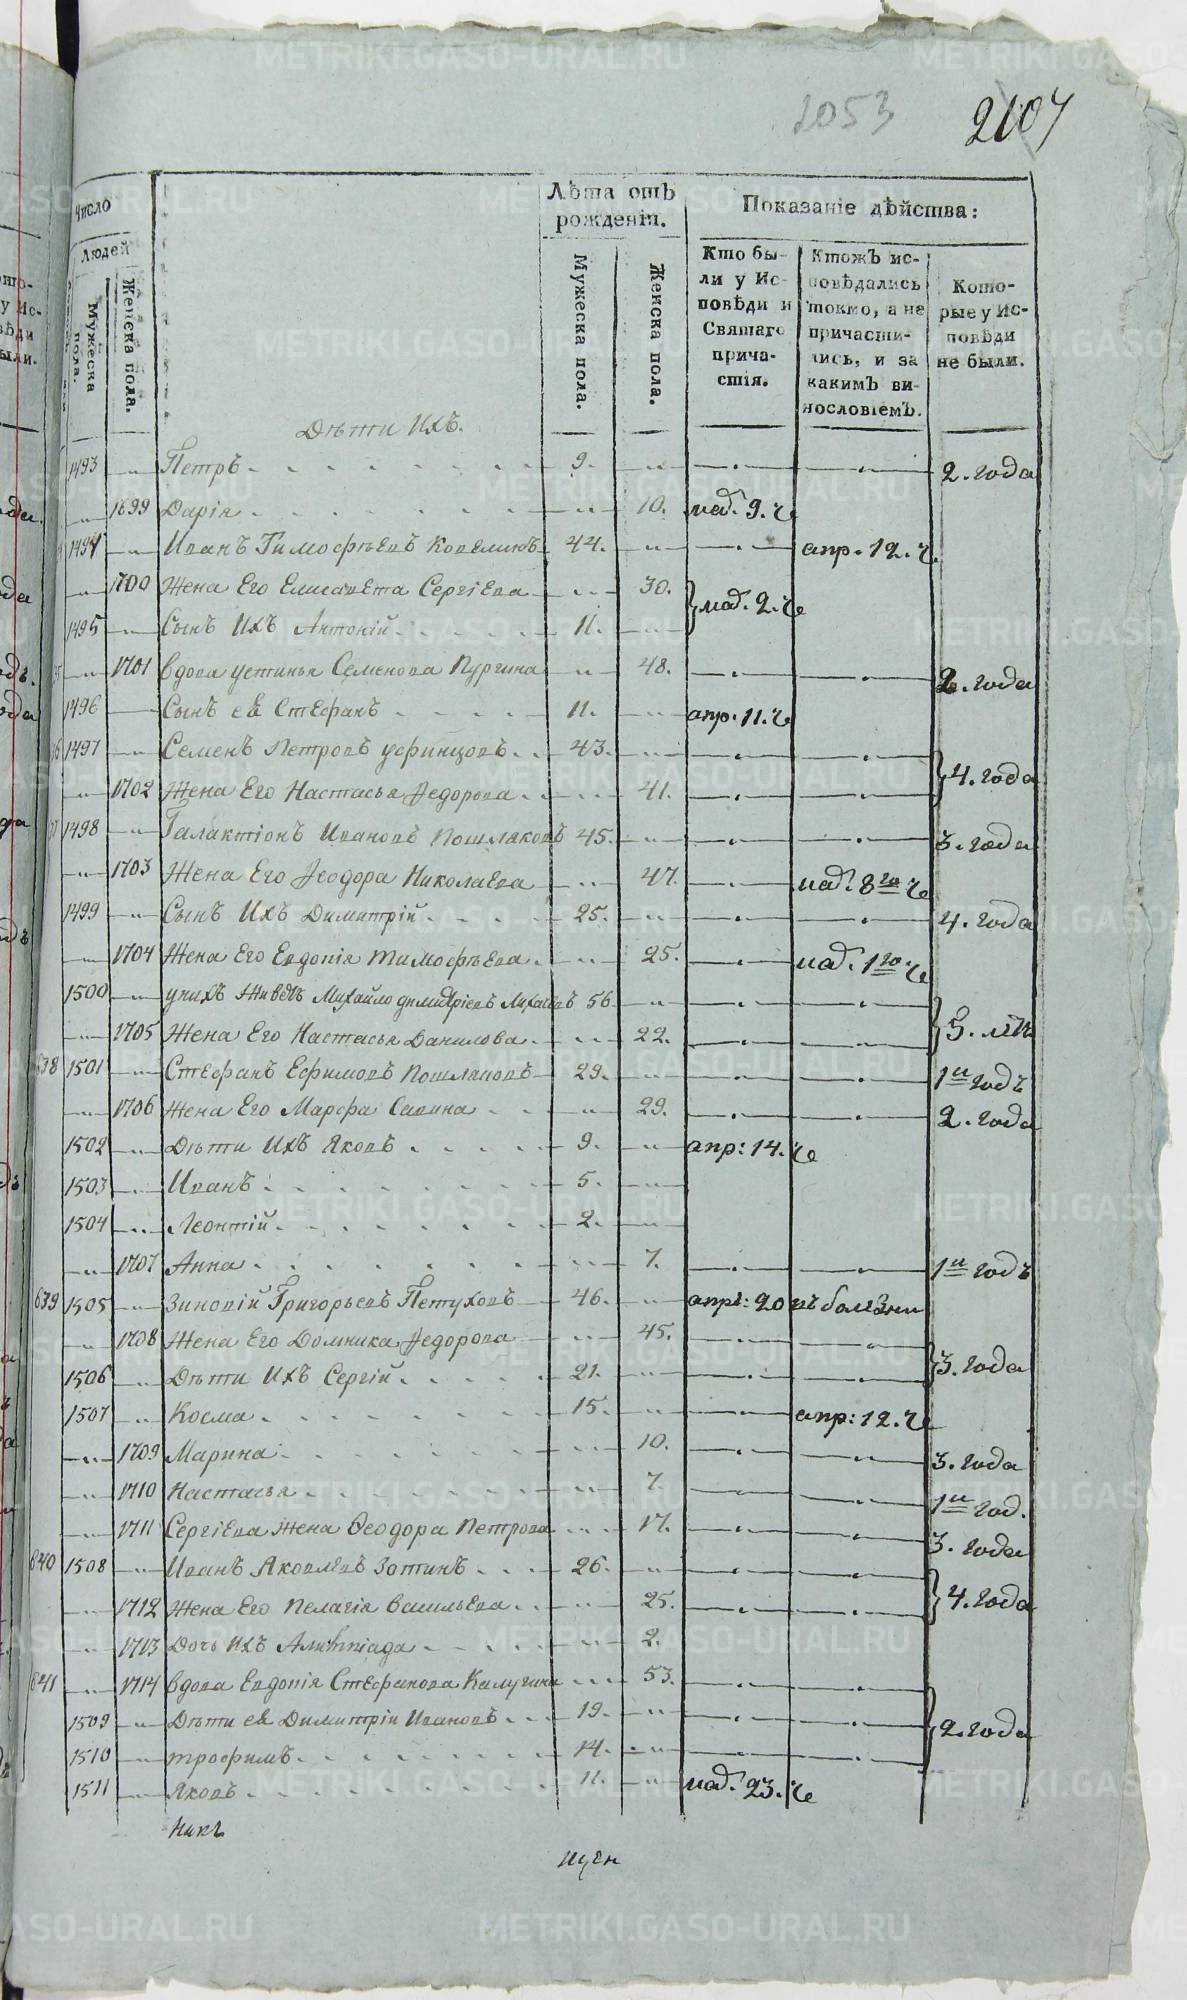 2053 2107
Число
Людей
Мужеска пола.
Женска пола.
Лѣта отъ рожденія.
Мужеска пола.
Женска пола.
Показаніе дѣйства:
Кто бы-
ли у Ис-
повѣди и
Святаго
прича-
стія.
Ктожъ ис-
повѣдались
токмо, а не
причасти-
лись, и за
какимъ ви-
нословіемъ.
Кото-
рые у Ис-
повѣди
не были.
Дѣти Ихъ.
1493 Петръ 9. 2. года
1699 Дарія 10. маѣ. 9. ч
1494 Иванъ Тимофѣевъ Ковелинъ 44. апр. 12. ч.
1700 Жена Его Елисавета Сергіева 30. маѣ. 2. ч
1495 Сынъ Ихъ Антоній 11.
1701 вдова устинья Семенова Пургина 48. 2. года
1496 Сынъ ея Стефанъ 11. апр. 11. ч
1497 Семенъ Петровъ уфинцовъ 43. 4. года
1702 Жена Его Настасья Ѳедорова 41.
1498 Галактіонъ Ивановъ Пошляковъ 45. 3. года
1703 Жена Его Ѳеодора Николаева 47. маѣ. 8го ч
1499 Сынъ Ихъ Димитрій 25. 4. года
1704 Жена Его Евдокія Тимофѣева 25. маѣ. 1го ч
1500 унихъ Живетъ Михайло димитріевъ 56. 5. лѣтъ
1705 Жена Его Настасья Данилова 22.
638 1501 Стефанъ Ефимовъ Пошляковъ 29. 1й годъ
1706 Жена Его Марфа Савина 29. 2. года
1502 Дѣти Ихъ Яковъ 9. апр: 14. ч
1503 Иванъ 5.
1504 Леонтій 2.
1707 Анна 7. 1й годъ
639 1505 Зиновій Григорьевъ Петуховъ 46. апрѣ: 20 въ болезни
1708 Жена Его Домника Ѳедорова 45. 3. года
1506 Дѣти Ихъ Сергій 21.
1507 Косма 15. апр: 12. ч
1709 Марина 10. 3. года
1710 Настасья 7. 1й год.
1711 Сергіева Жена Ѳеодора Петрова 17. 3. года
640 1508 Иванъ Яковлевъ Зотинъ 26. 4. года
1712 Жена Его Пелагія васильева 25.
1713 Дочь Ихъ Алимпіада 2.
641 1714 вдова Евдокія Стефанова Калугина 53. 2. года
1509 Дѣти ея Димитрій Ивановъ 19.
1510 трофимъ 14.
1511 Яковъ 11. маѣ. 23. ч